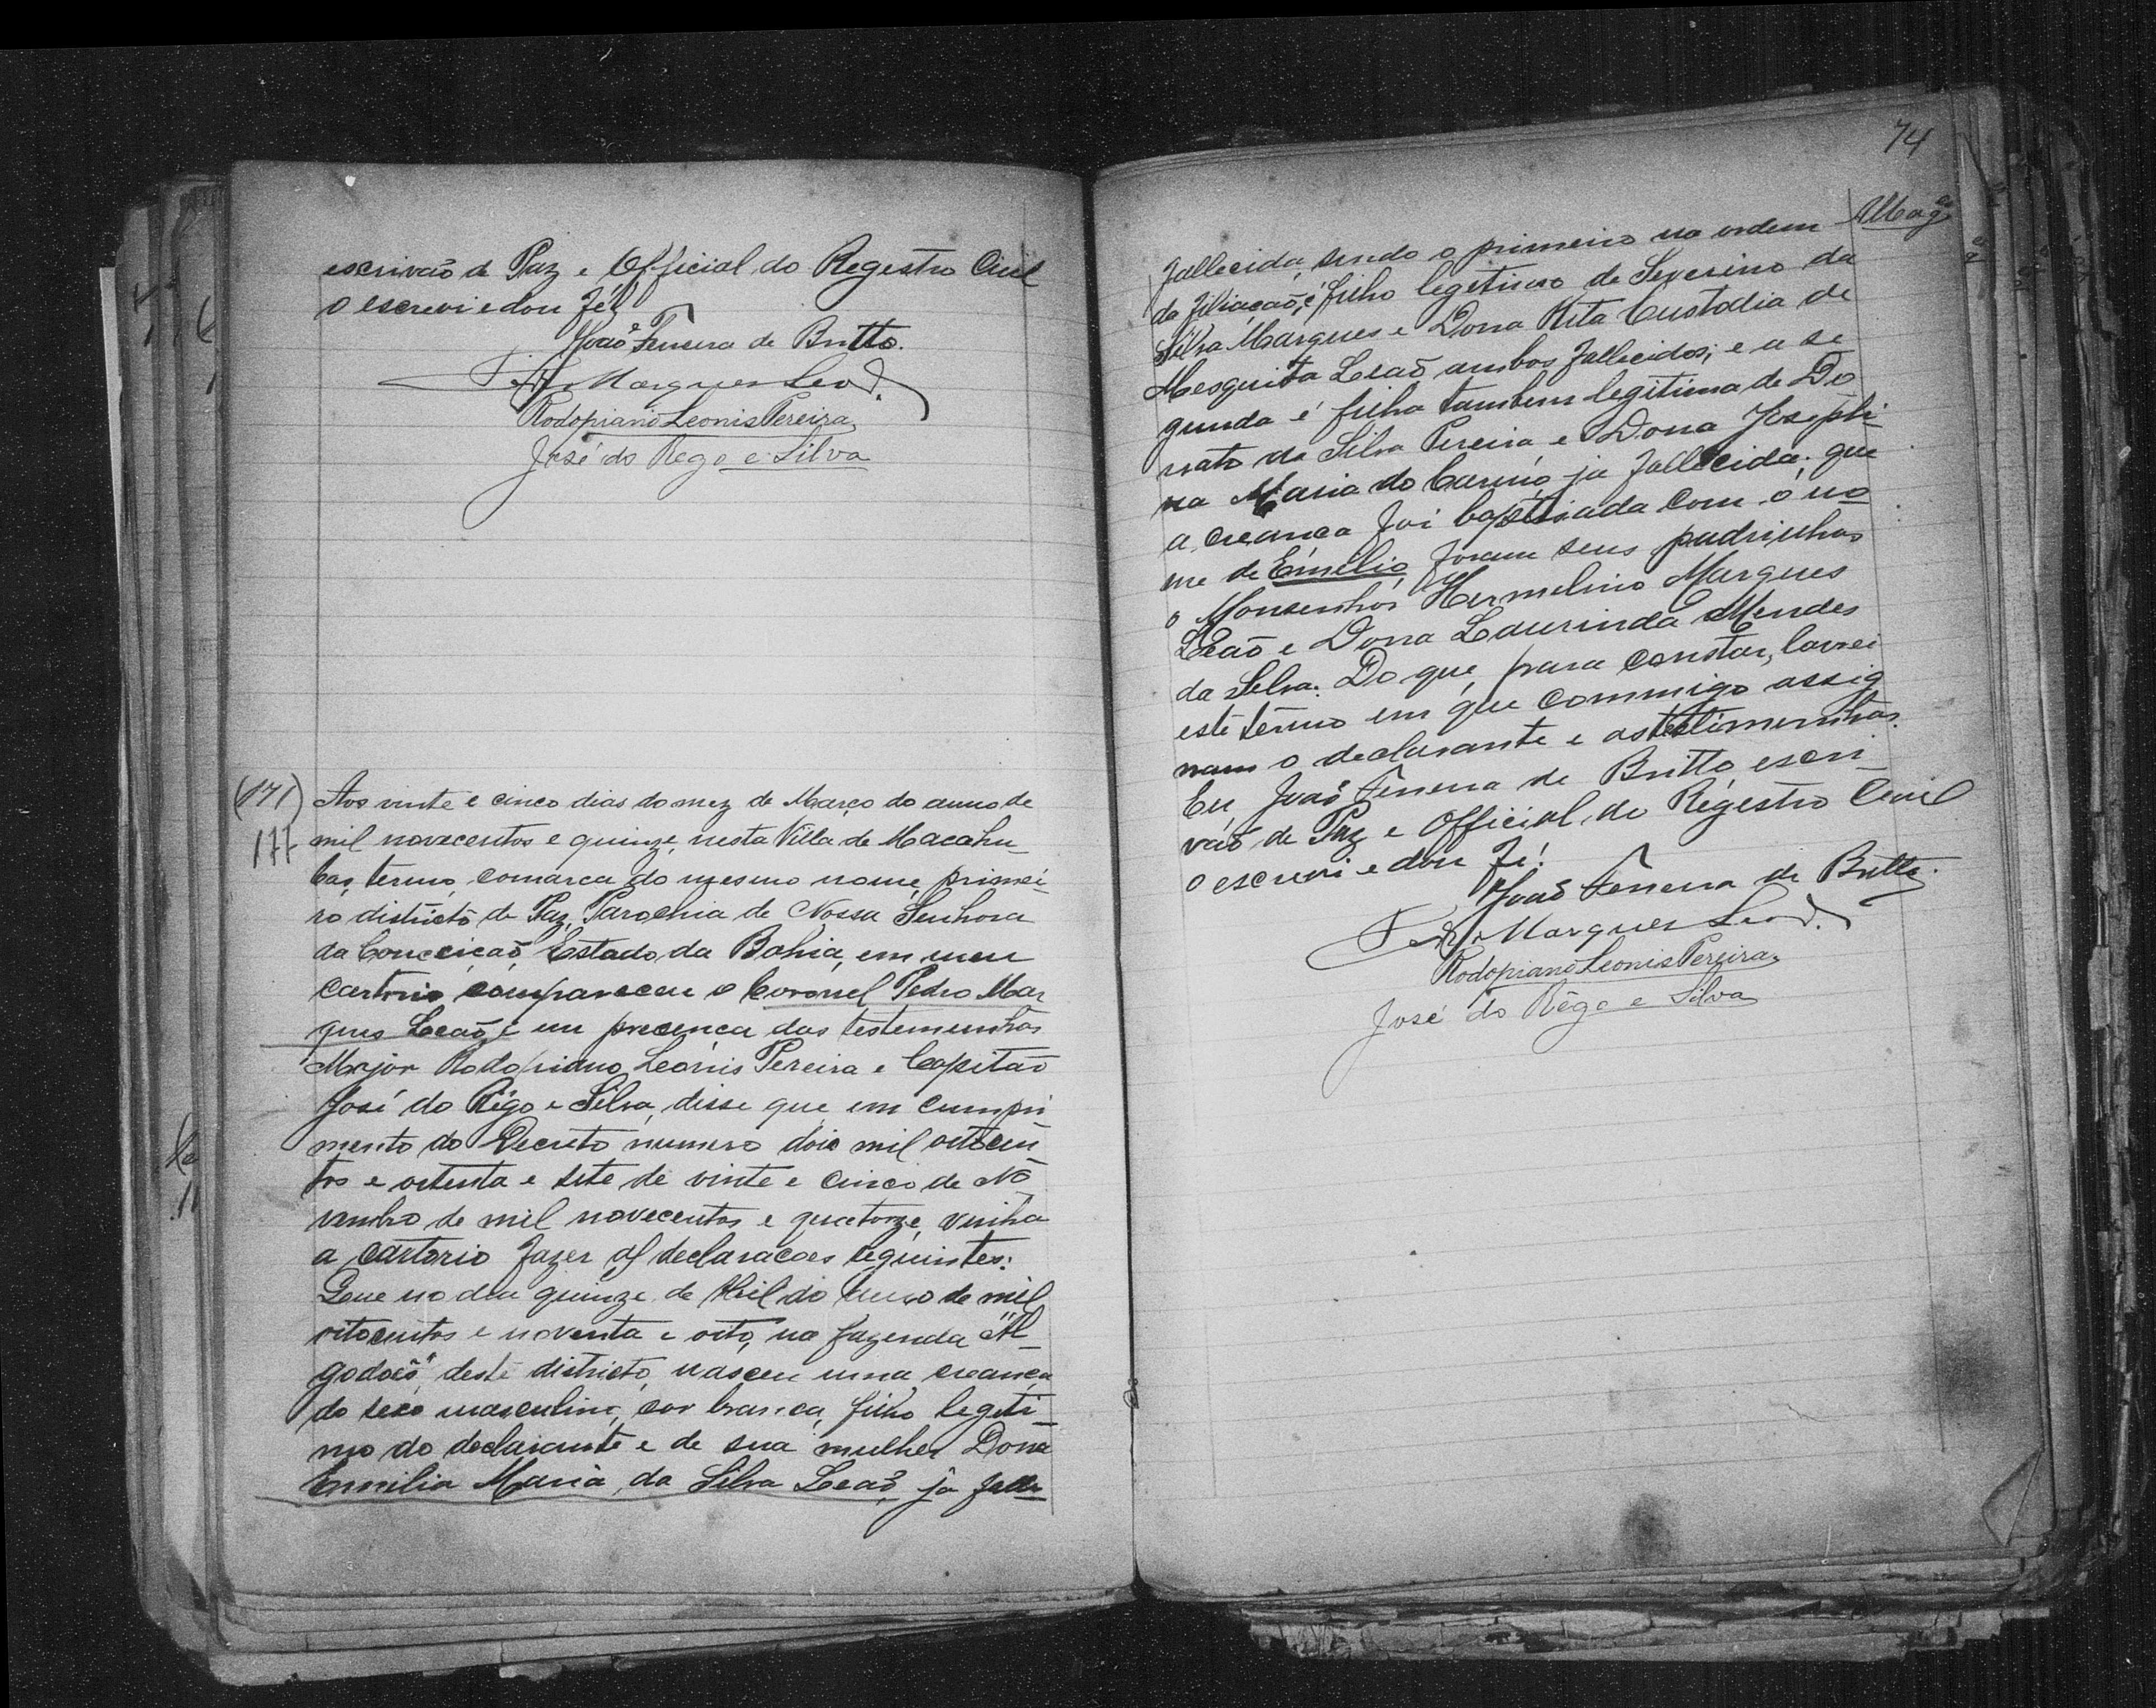 escrivaõ de Paz e Official do Registro Civil
o escrevi e dou fé!
João Ferreira de Britto.
Pedro Marques Leaõ.
Rodopiano Leonis Pereira
José do Rego e Silva
(171) Aos vinte e cinco dias do mez de Março do anno de
177 mil novecentos e quinze, nesta Villa de Macahu_
bas, termo, comarca do mesmo nome, primei_
ro districto de Paz, Parochia de Nossa Senhora
da Conceicaõ, Estado da Bahia, em meu
cartorio, compareceu o Coronel Pedro Mar
ques Leaõ, e em presença das testemunhas
Major Rodopiano Leonis Pereira e Capitaõ
José do Rêgo e Silva, disse que em cumpri
mento do Decreto numero dois mil oitocen
tos e oitenta e sete de vinte e cinco de No
vembro de mil novecentos e quatorze, vinha
a cartorio fazer as declaracoes seguintes:
Que no dia quinze de Abril do anno de mil
oitocentos e noventa e oito, na fazenda "Al_
godoēs" deste districto, nasceu uma creança
do sexo masculino, cor branca, filho legiti_
mo do declarante e de sua mulher Dona
Emilia Maria da Silva Leaõ, já falle
74
fallecida, sendo o primeiro na ordem
da filiaçaõ, é filho legitimo de Severino da
Silva Marques e Dona Rita Custodia de
Mesquita Leaõ ambos fallecidos; e a se
gunda é filha tambem legitima de Do
nato da Silva Pereira e Dona Josephi_
na Maria do Carmo, já fallecida; que
a creança foi baptisada com o no
me de Emilio, foram seus padrinhos
o Monsenhor Hermelino Marques
Leão e Dona Laurinda Mendes
da Silva. Do que, para constar, lavrei
este termo em que commigo assig
nam o declarante e as testimunhas.
Eu, João Ferreira de Britto, escri_
vaõ de Paz e Official do Registro Civil
o escrevi e dou fé!
João Ferreira de Britto.
Pedro Marques Leaõ.
Rodopiano Leonis Pereira
José do Rêgo e Silva